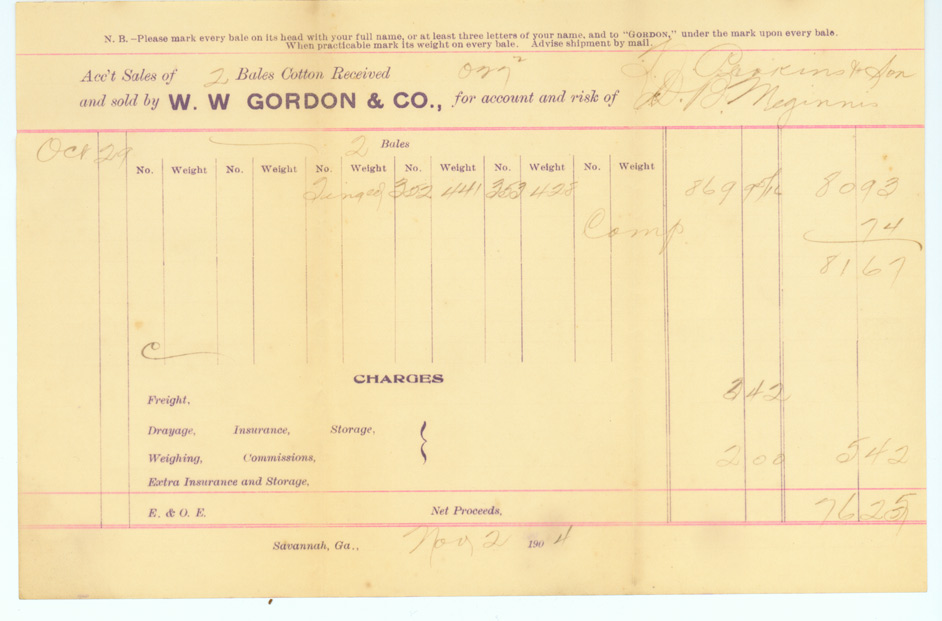 N. B.—Please mark every bale on its head with your full name, or at least three letters of your name, and to "GORDON," under the mark upon every bale.
When practicable mark its weight on every bale. Advise shipment by mail.
Acc't Sales of 2 Bales Cotton Received
and sold by W. W GORDON & CO., for account and risk of D. B. Meginnis
Oct 29 2 Bales
No. Weight No. Weight No. Weight No. Weight No. Weight No. Weight
352 441 353 428 869 9 5/16 8093
Comp 74
8167
C
CHARGES
Freight, 342
Drayage, Insurance, Storage,
Weighing, Commissions, 200 542
Extra Insurance and Storage,
E. & O. E. Net Proceeds, 7625
Savannah, Ga., Nov 2 1904